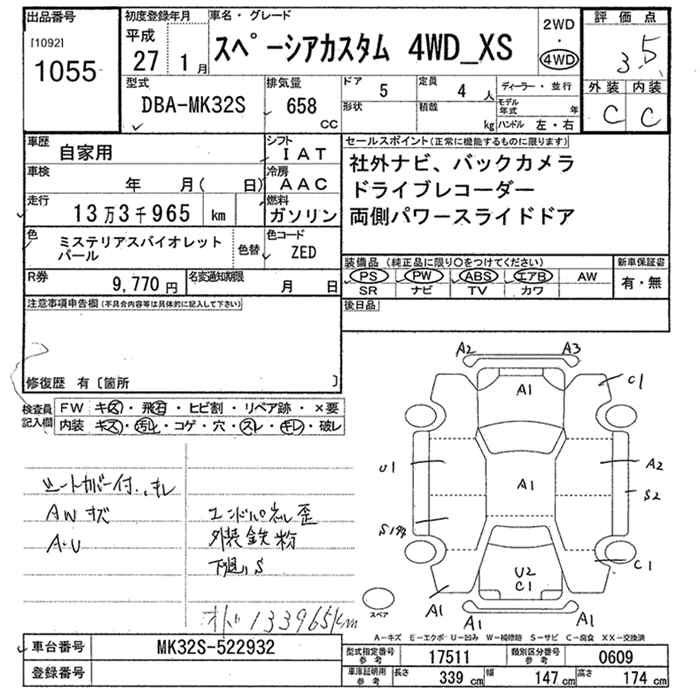 出品番号
[1092]
1055
初度登録年月
平成
27年 1月
車名・グレード
スペーシアカスタム 4WD_XS
2WD
・
4WD
評価点
3.5
外装 内装
C C
型式
DBA-MK32S
排気量
658
CC
ドア
5
形状
定員
4人
積載
kg
ディーラー・並行
モデル年式 年
ハンドル 左・右
車歴
自家用
シフト
IAT
車検
年 月( 日)
冷房
AAC
走行
13万3千965 km
燃料
ガソリン
色
ミステリアスバイオレット
パール
色替
色コード
ZED
R券
9,770円
名変通知期限
月 日
セールスポイント(正常に機能するものに限ります)
社外ナビ、バックカメラ
ドライブレコーダー
両側パワースライドドア
装備品(純正品に限り○をつけてください)
新車保証書
PS PW ABS エアB AW
SR ナビ TV カワ
有・無
後日品
注意事項申告欄(不具合内容等は具体的に記入して下さい)
修復歴 有〔箇所 〕
検査員
記入欄
FW キズ・飛石・ヒビ割・リペア跡・×要
内装 キズ・汚れ・コゲ・穴・スレ・キレ・破レ
シートカバー付..キレ
AWキズ
A・U
エンドパネル歪
外装鉄粉
下廻りS
133965km
A2 A3
A1
C1
U1
A2
A1
S2
C1
U2
C1
A1
A1
A1
スペア
A-キズ E-エクボ U-凹み W-補修跡 S-サビ C-腐食 XX-交換済
車台番号
MK32S-522932
登録番号
型式指定番号
参考
17511
類別区分番号
参考
0609
車庫証明用
参考
長さ
339 cm
幅
147 cm
高さ
174 cm